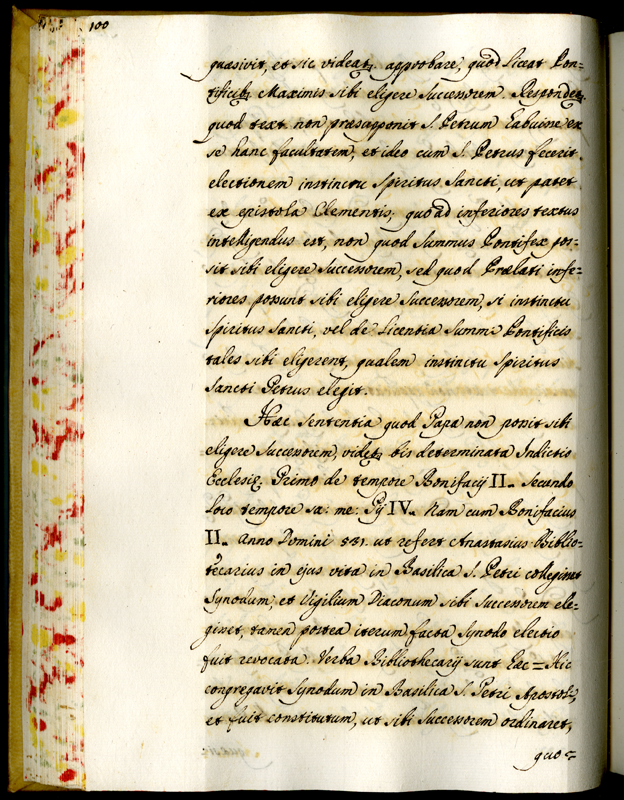 100
quasivit, et sic videat.r approbare, quod liceat Pon=
tificib.s Maximis sibi eligere Successorem. Respondet.r
quod text. non præsupponit S. Petrum habuisse ex
se hanc facultatem, et ideo cum S. Petrus fecerit
electionem instinctu Spiritus Sancti, ut patet
ex epistola Clementis, quo ad inferiores textus
intelligendus est, non quod Summus Pontifex pos=
sit sibi eligere Successorem, sed quod Prælati infe=
riores possunt sibi eligere Successorem, si instinctu
Spiritus Sancti, vel de licentia Summi Pontificis
tales sibi eligerent, qualem instinctu Spiritus
Sancti Petrus elegit.
Hæc sententia quod Papa non possit sibi
eligere Successorem, videt.r bis determinata Indictio
Ecclesię. Primo de tempore Bonifacij II. Secundo
loco tempore sa: me: Pij IV. Nam cum Bonifacius
II. anno Domini 531. ut refert Anastasius Biblio=
tecarius in ejus vita in Basilica S. Petri collegisset
Synodum, et Vigilium Diaconum sibi Successorem ele=
gisset, tamen postea iterum facta Synodo electio
fuit revocata. Verba Bibliothecarij sunt Eæc = Hic
congregavit Synodum in Basilica S. Petri Apostoli,
et fuit constitutum, ut sibi Successorem ordinaret,
quo=